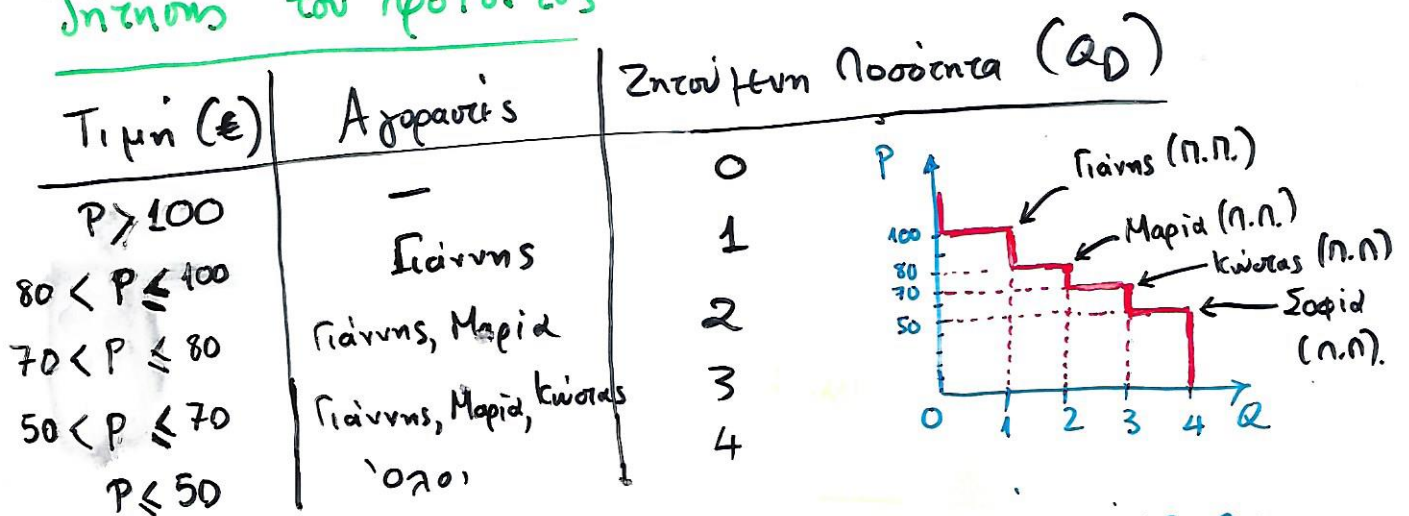 ζήτησης του προϊόντος
Τιμή (€) Αγοραστές Ζητούμενη Ποσότητα (QD)
P > 100 — 0
80 < P ≤ 100 Γιάννης 1
70 < P ≤ 80 Γιάννης, Μαρία 2
50 < P ≤ 70 Γιάννης, Μαρία, Κώστας 3
P ≤ 50 Όλοι 4
P
Γιάννης (Π.Π.)
Μαρία (Π.Π.)
Κώστας (Π.Π)
Σοφία
(Π.Π).
100
80
70
50
0 1 2 3 4 Q